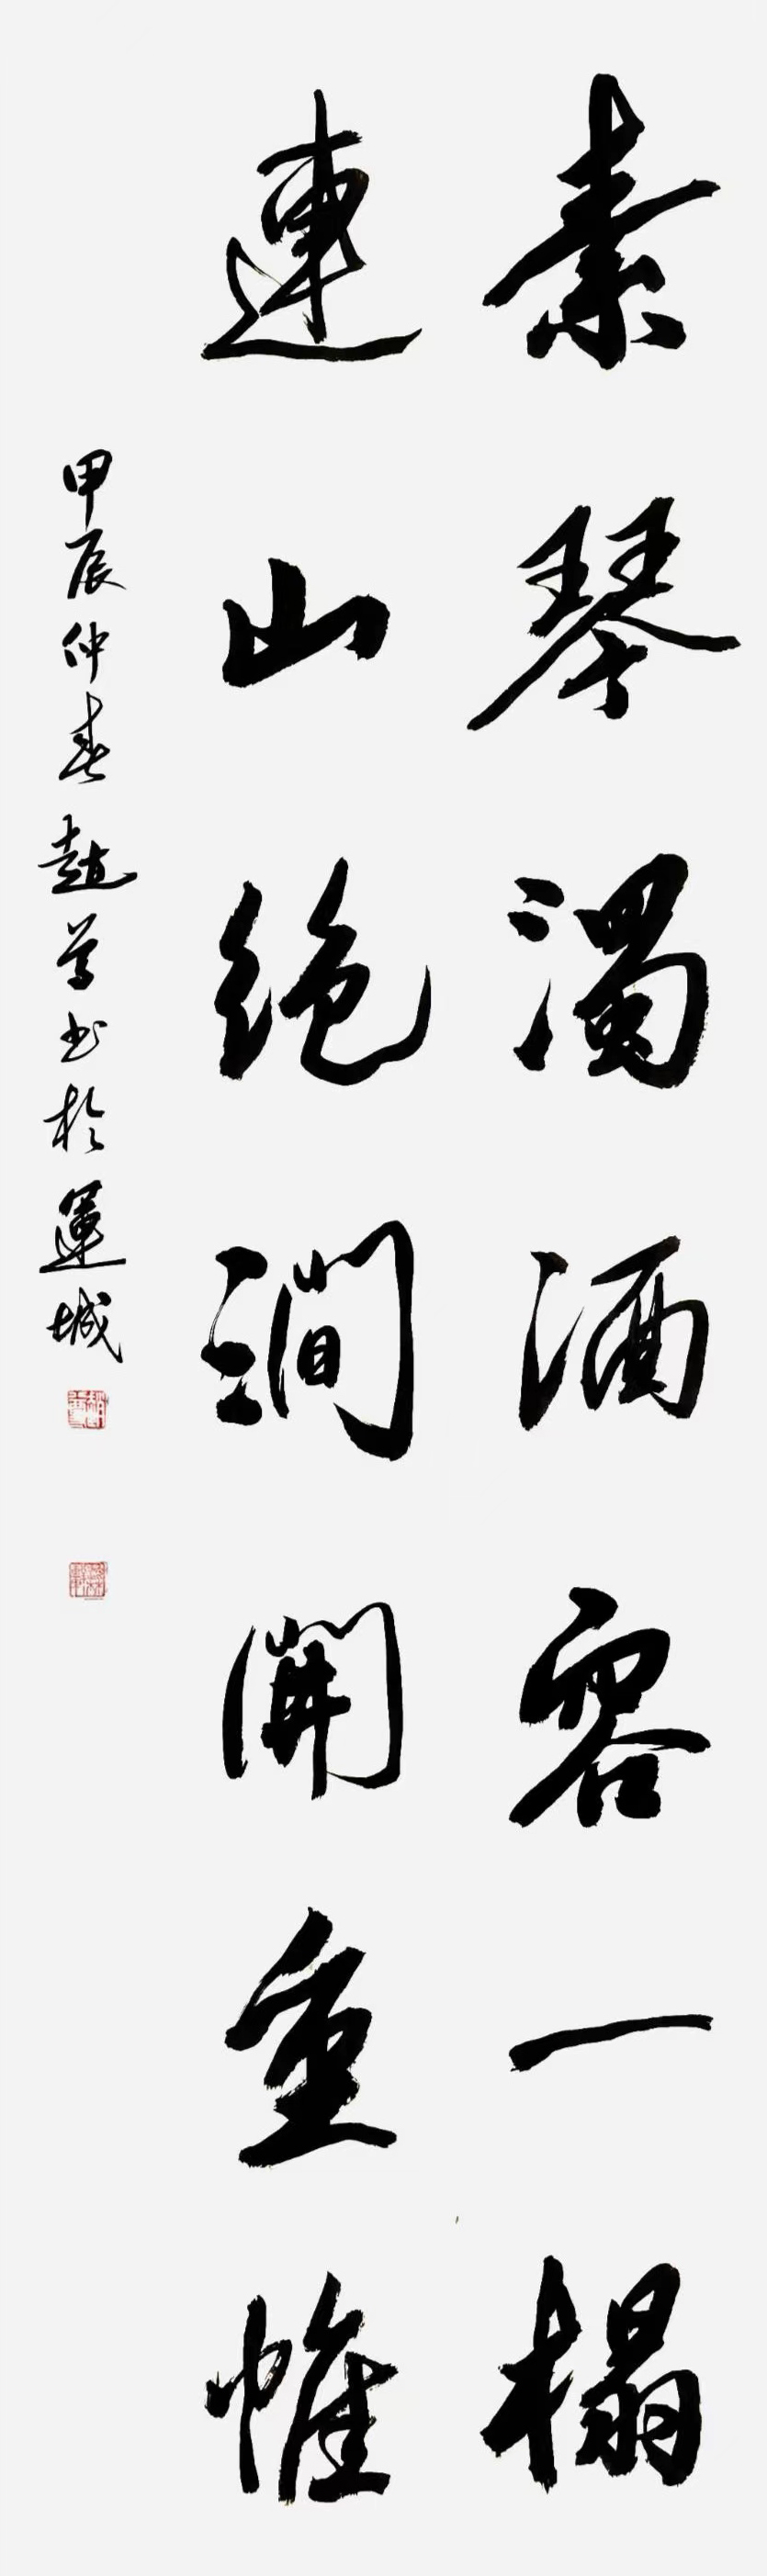 素琴濁酒容一榻
連山絕澗開重帷
甲辰仲春趙尊书於運城